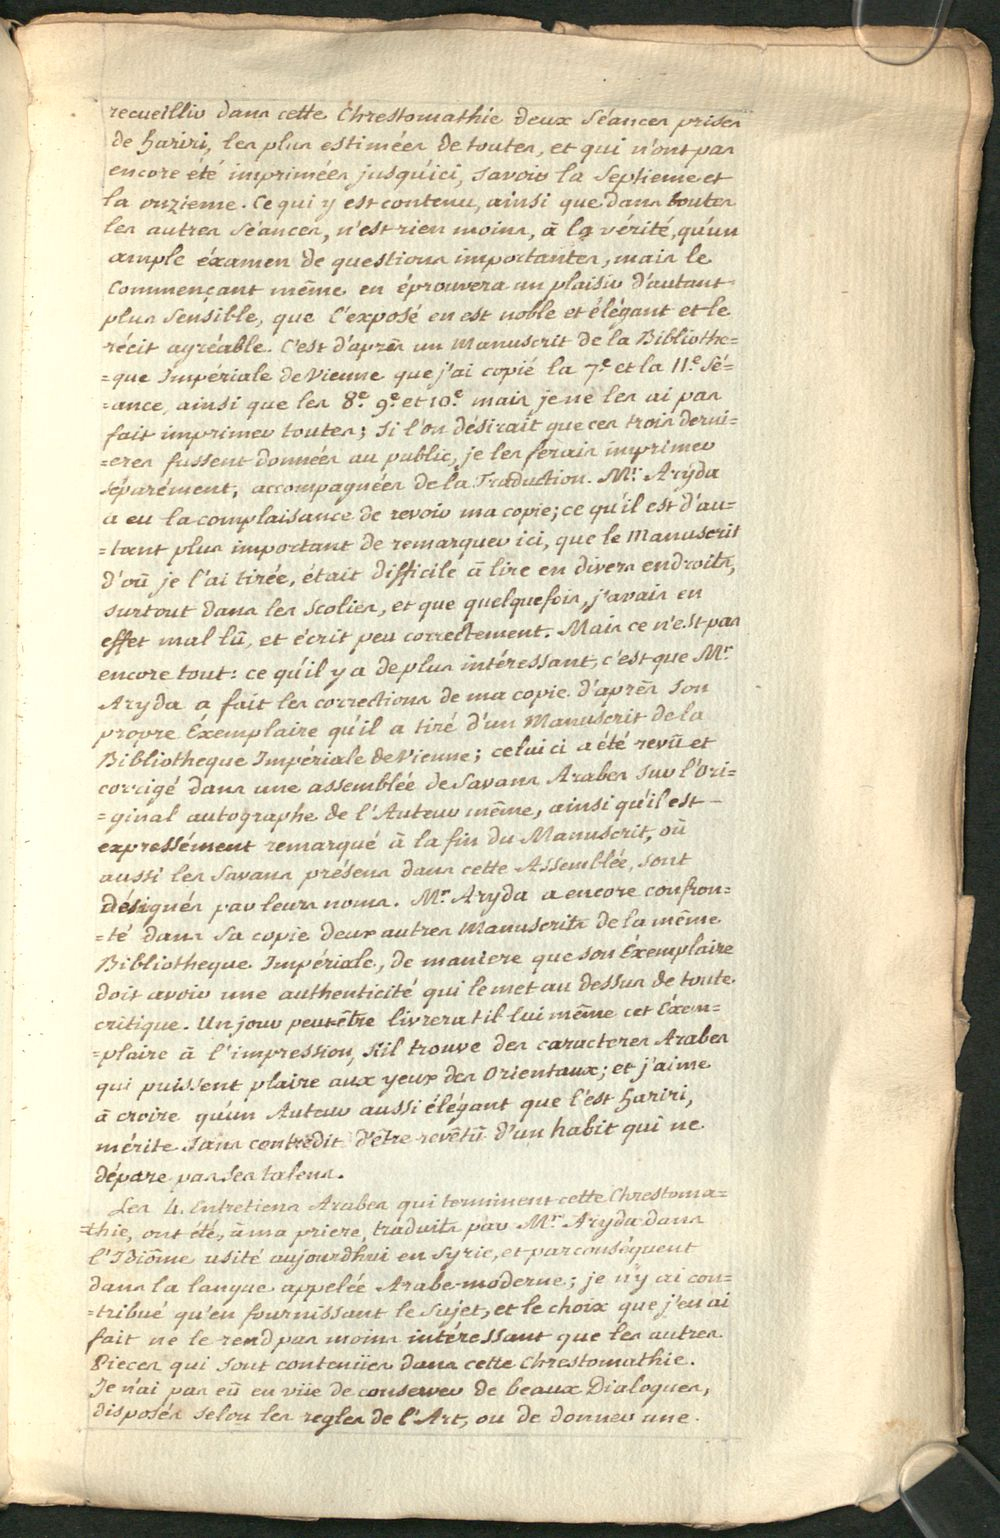 recueilliv dans cette Chrestomathie deux Séances prises
de hariri, les plus estimées de toutes, et qui n'ont pas
encore été imprimées jusqu'ici, savoir la Septieme et
la onzieme. Ce qui y est contenu, ainsi que dans toutes
les autres Séances, n'est rien moins, à la vérité, qu'un
ample éxamen de questions importantes, mais le
Commençant même en éprouvera un plaisir d'autant
plus sensible, que l'exposé en est noble et élégant et le
récit agréable. C'est d'après un Manuscrit de la Bibliothe=
=que Impériale de Vienne que j'ai copié la 7.e et la 11.e Sé=
=ance, ainsi que les 8.e 9.e et 10.e mais je ne les ai pas
fait imprimer toutes; Si l'on désirait que ces trois derni=
=eres fussent données au public, je les ferais imprimer
séparément, accompagnées de la Traduction. Mr. Aryda
a eu la complaisance de revoir ma copie; ce qu'il est d'au=
=tant plus important de remarquer ici, que le Manuscrit
d'où je l'ai tirée, était difficile à lire en divers endroits,
surtout dans les Scolies, et que quelquefois, j'avais en
effet mal lû, et écrit peu correctement. Mais ce n'est pas
encore tout: ce qu'il y a de plus intéressant, c'est que Mr
Aryda a fait les corrections de ma copie d'après son
propre Éxemplaire qu'il a tiré d'un Manuscrit de la
Bibliotheque Impériale de Vienne; celui ci a été revû et
corrigé dans une assemblée de Savans Arabes sur l'Ori=
=ginal autographe de l'Auteur même, ainsi qu'il est
expressément remarqué à la fin du Manuscrit, où
aussi les Savans présens dans cette Assemblée, sont
désignés par leurs noms. Mr. Aryda a encore confron=
=té dans sa copie deux autres Manuscrits de la même
Bibliotheque Impériale, de maniere que son Éxemplaire
doit avoir une authenticité qui le met au dessus de toute
critique. Un jour peut-être livrera t il lui même cet Éxem=
=plaire à l'impression, s'il trouve des caracteres Arabes
qui puissent plaire aux yeux des Orientaux; et j'aime
à croire qu'un Auteur aussi élégant que l'est hariri,
mérite sans contredit d'être revêtû d'un habit qui ne
dépare pas ses talens.
Les 4. Entretiens Arabes qui terminent cette Chrestoma=
=thie, ont été, à ma priere, traduits par Mr Aryda dans
l'Idiôme usité aujourdhui en Syrie, et par conséquent
dans la langue appelée Arabe-moderne; je n'y ai con=
=tribué qu'en fournissant le Sujet, et le choix que j'en ai
fait ne le rend pas moins intéressant que les autres
Pieces qui sont contenües dans cette Chrestomathie.
Je n'ai pas eû en vüe de conserver de beaux Dialogues,
disposés selon les regles de l'Art, ou de donner une